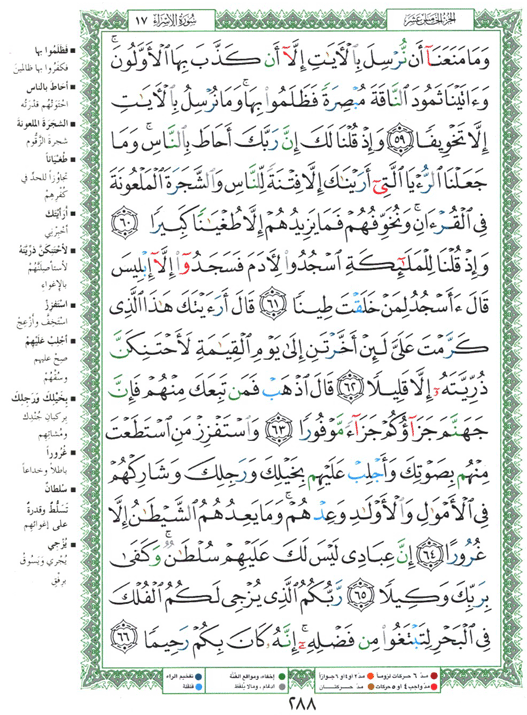 الجزء الخامس عشر
سورة الإسراء ١٧
وَمَا مَنَعَنَآ أَن نُّرۡسِلَ بِٱلۡأٓيَٰتِ إِلَّآ أَن كَذَّبَ بِهَا ٱلۡأَوَّلُونَۚ
وَءَاتَيۡنَا ثَمُودَ ٱلنَّاقَةَ مُبۡصِرَةٗ فَظَلَمُواْ بِهَاۚ وَمَا نُرۡسِلُ بِٱلۡأٓيَٰتِ
إِلَّا تَخۡوِيفٗا ٥٩ وَإِذۡ قُلۡنَا لَكَ إِنَّ رَبَّكَ أَحَاطَ بِٱلنَّاسِۚ وَمَا
جَعَلۡنَا ٱلرُّءۡيَا ٱلَّتِيٓ أَرَيۡنَٰكَ إِلَّا فِتۡنَةٗ لِّلنَّاسِ وَٱلشَّجَرَةَ ٱلۡمَلۡعُونَةَ
فِي ٱلۡقُرۡءَانِۚ وَنُخَوِّفُهُمۡ فَمَا يَزِيدُهُمۡ إِلَّا طُغۡيَٰنٗا كَبِيرٗا ٦٠
وَإِذۡ قُلۡنَا لِلۡمَلَٰٓئِكَةِ ٱسۡجُدُواْ لِأٓدَمَ فَسَجَدُوٓاْ إِلَّآ إِبۡلِيسَ
قَالَ ءَأَسۡجُدُ لِمَنۡ خَلَقۡتَ طِينٗا ٦١ قَالَ أَرَءَيۡتَكَ هَٰذَا ٱلَّذِي
كَرَّمۡتَ عَلَيَّ لَئِنۡ أَخَّرۡتَنِ إِلَىٰ يَوۡمِ ٱلۡقِيَٰمَةِ لَأَحۡتَنِكَنَّ
ذُرِّيَّتَهُۥٓ إِلَّا قَلِيلٗا ٦٢ قَالَ ٱذۡهَبۡ فَمَن تَبِعَكَ مِنۡهُمۡ فَإِنَّ
جَهَنَّمَ جَزَآؤُكُمۡ جَزَآءٗ مَّوۡفُورٗا ٦٣ وَٱسۡتَفۡزِزۡ مَنِ ٱسۡتَطَعۡتَ
مِنۡهُم بِصَوۡتِكَ وَأَجۡلِبۡ عَلَيۡهِم بِخَيۡلِكَ وَرَجِلِكَ وَشَارِكۡهُمۡ
فِي ٱلۡأَمۡوَٰلِ وَٱلۡأَوۡلَٰدِ وَعِدۡهُمۡۚ وَمَا يَعِدُهُمُ ٱلشَّيۡطَٰنُ إِلَّا
غُرُورًا ٦٤ إِنَّ عِبَادِي لَيۡسَ لَكَ عَلَيۡهِمۡ سُلۡطَٰنٞۚ وَكَفَىٰ
بِرَبِّكَ وَكِيلٗا ٦٥ رَّبُّكُمُ ٱلَّذِي يُزۡجِي لَكُمُ ٱلۡفُلۡكَ
فِي ٱلۡبَحۡرِ لِتَبۡتَغُواْ مِن فَضۡلِهِۦٓۚ إِنَّهُۥ كَانَ بِكُمۡ رَحِيمٗا ٦٦
فَظَلَمُوا بها
فكفروا بها ظالمين
أحاط بالناس
احتوتهم قدرته
الشجرة الملعونة
شجرة الزقوم
طُغْيَاناً
تجاوزاً للحد في
كفرهم
أرأيتك
أخبرني
لأحتنكنّ ذريّته
لأستأصلنّهم
بالإغواء
استفزز
استخف وأزعج
أجلب عليهم
صِحْ عليهم
وسُقْهُم
بخيلك ورجلك
بركبان جندك
ومشاتهم
غروراً
باطلاً وخداعاً
سلطانٌ
تسلّط وقدرة
على إغوائهم
يُزْجي
يُجري ويسوق
برفق
مدّ ٦ حركات لزوماً
مدّ ٢ أو ٤ أو ٦ جوازاً
إخفاء، ومواقع الغُنَّة
تفخيم الراء
مدّ واجب ٤ أو ٥ حركات
مدّ حركتان
إدغام، وما لا يُلفظ
قلقلة
٢٨٨